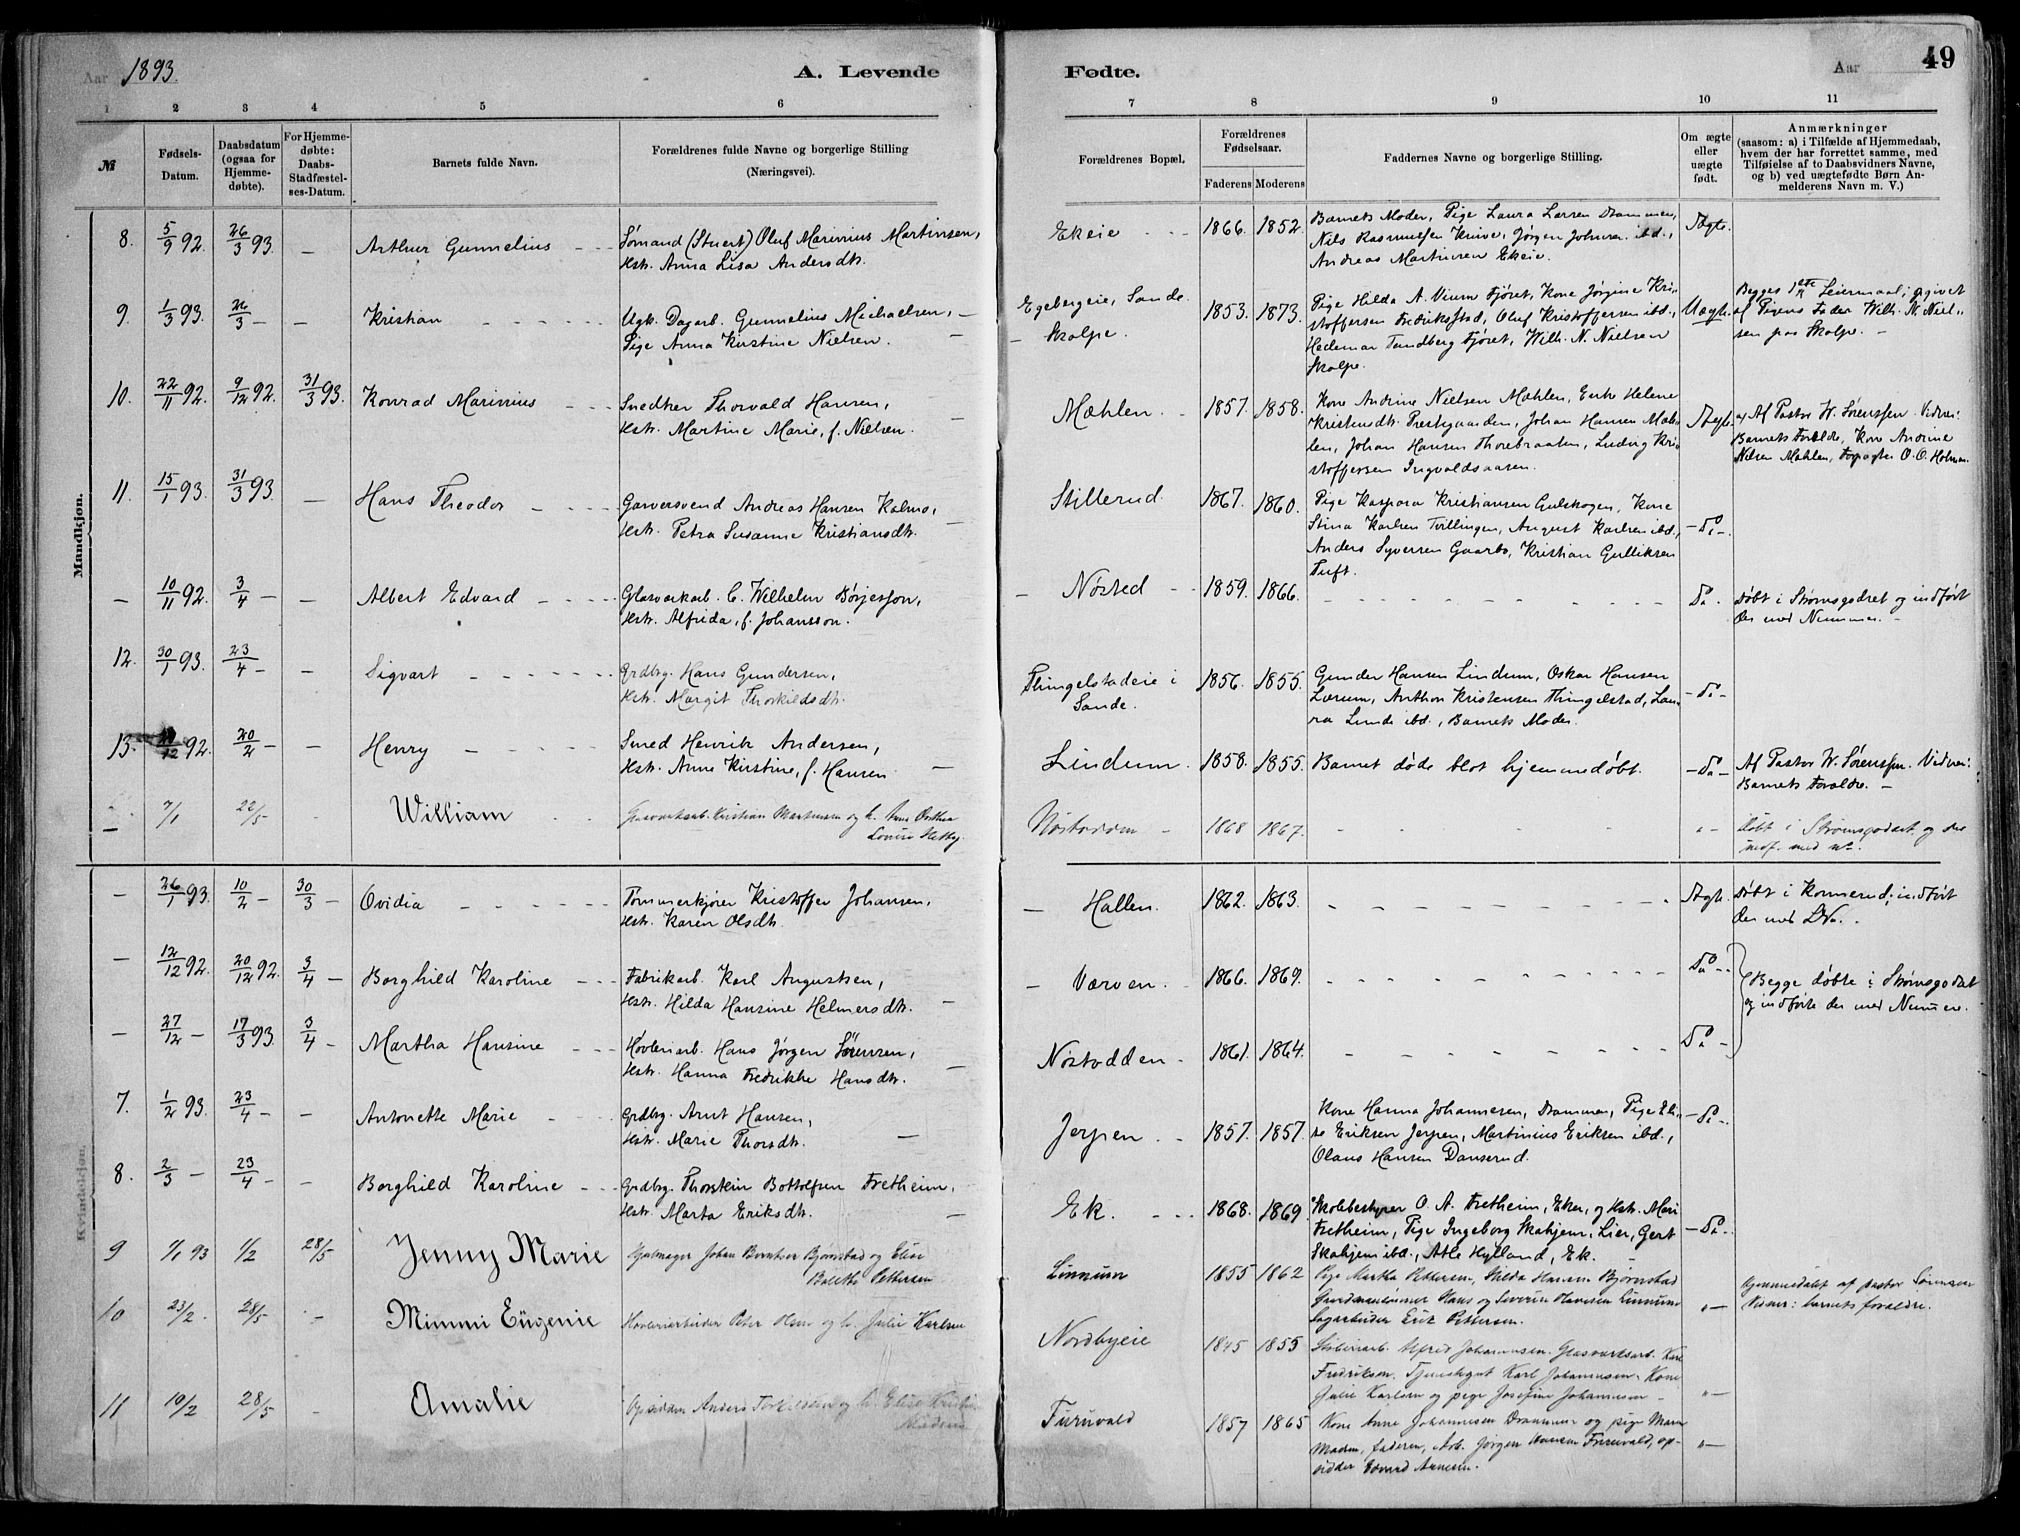 Aar 1893. A. Levende
Fødte. Aar 49
1 2 3 4 5 6
7 8 9 10 11
№
Fødsels-
Datum.
Daabsdatum
(ogsaa for
Hjemme-
døbte).
For Hjemme-
døbte:
Daabs-
Stadfæstel-
ses-Datum.
Barnets fulde Navn.
Forældrenes fulde Navne og borgerlige Stilling
(Næringsvei).
Forældrenes Bopæl.
Forældrenes
Fødselsaar.
Faderens Moderens
Faddernes Navne og borgerlige Stilling.
Om ægte
eller
uægte
født.
Anmærkninger
(saasom: a) i Tilfælde af Hjemmedaab,
hvem der har forrettet samme, med
Tilføielse af to Daabsvidners Navne,
og b) ved uægtefødte Børn An-
melderens Navn m. V.)
Mandkjøn.
8. 5/9 92. 26/3 93. — Arthur Gunnelius
Sømand (Stuert) Oluf Marinius Martinsen,
Hstr. Anna Lisa Andersdtr.
Ekeie 1866. 1852.
Barnets Moder, Pige Laura Larsen Drammen,
Nils Rasmussen Knive, Jørgen Johnsen ibd.,
Andreas Martinsen Ekeie.
Ægte.
9. 1/3 93. 26/3 — — Kristian
Ugk. Dagarb. Gunnelius Michaelsen, —
Pige Anna Kirstine Nielsen. —
Egebergeie, Sande.
— Skolpe.
1853. 1873.
Pige Hilda A. Vium Fjøret, Kone Jørgine Kri-
stoffersen Fredrikstad, Oluf Kristoffersen ibd.,
Hedemar Tandberg Fjøret, Wilh. N. Nielsen
Skolpe.
Uægte.
Begges 1ste Leiermaal; opgivet
af Pigens Fader Wilh. N. Niel-
sen paa Skolpe. —
10. 22/11 92. 9/12 92. 31/3 93. Konrad Marinius
Snedker Thorvald Hansen,
Hstr. Martine Marie, f. Nielsen.
Mæhlen. 1857. 1858.
Kone Andrine Nielsen Mæhlen, Enke Helene
Kristensdtr. Prestegaarden, Johan Hansen Mæh-
len, Johan Hansen Thorebraaten, Ludvig Kri-
stoffersen Ingvoldsaasen.
Ægte.
Af Pastor W. Sørenssen. Vidner:
Barnets Forældre, Kone Andrine
Nilsen Mæhlen, Forpagter O. O. Holman.
11. 15/1 93. 31/3 93. — Hans Theodor
Garversvend Andreas Hansen Kalmo,
Hstr. Petra Susanne Kristiansdtr.
Stillerud. 1867. 1860.
Pige Kaspara Kristiansen Gulskogen, Kone
Stina Karlsen Tvillingen, August Karlsen ibd.,
Anders Syversen Gaarbo, Kristian Gulliksen
Tuft.
— Do —
— 10/11 92. 3/4 — — Albert Edvard
Glasværkarb. C. Wilhelm Børjesson,
Hstr. Alfrida, f. Johansson.
— Nøsted 1859. 1866.
Do.
Døbt i Strømsgodset og indført
der med Nummer. —
12. 30/1 93. 23/4 — — Sigvart
Grdbrg. Hans Gundersen,
Hstr. Margit Thorkildsdtr.
Thingelstadeie i
Sande.
1856. 1855.
Gunder Hansen Lindum, Oskar Hansen
Lærum, Anthon Kristensen Thingelstad, Lau-
ra Lunde ibd., Barnets Moder.
— Do —
13. 12 92. 20/2 — — Henry
Smed Henrik Andersen,
Hstr. Anne Kirstine, f. Hansen —
Lindum. 1858. 1855.
Barnet døde blot hjemmedøbt.
— Do —
Af Pastor W. Sørenssen. Vidner:
Barnets Forældre. —
— 7/1 22/5 William
Glasværksarb. Kristian Martinsen og h. Anne Dorthea
Lovise Hetbg.
Nøstodden — 1868 1867.
Døbt i Strømsgodset og der
indf. med No.
Kvindekjøn.
— 26/1 93. 10/2 — 30/3 — Ovidia
Tømmerkjører Kristoffer Johansen,
Hstr. Karen Olsdtr.
— Hallen. 1862. 1863.
Ægte.
Døbt i Konnerud; indført
der med No.
— 12/12 92. 20/12 92. 3/4 — Borghild Karoline
Fabrikarb. Karl Augustsen,
Hstr. Hilda Hansine Helmersdtr.
— Værven. 1866. 1869.
Do
Begge døbte i Strømsgodset
og indførte der med Nummer.
— 27/12 — 17/3 93. 3/4 — Martha Hansine
Høvleriarb. Hans Jørgen Sørensen,
Hstr. Hanna Fredrikke Hansdtr.
Nøstodden 1861. 1864.
Do —
7. 1/2 93. 23/4 — — Antonette Marie
Grdbrg. Arnt Hansen,
Hstr. Marie Thorsdtr. —
Jerpen 1857. 1857.
Kone Hanna Johannesen, Drammen, Pige Eli-
se Eriksen Jerpen, Martinius Eriksen ibd.,
Olaus Hansen Danserud.
— Do —
8. 2/3 — 23/4 — — Borghild Karoline
Grdbrg. Thorstein Bottolfsen Fretheim,
Hstr. Marta Eriksdtr. —
Ek. 1868. 1869.
Skolebestyrer O. A. Fretheim, Eker, og Hstr. Mari
Fretheim, Pige Ingeborg Skahjem, Lier, Gert
Skahjem ibd., Atle Hylland, Ek.
— Do —
9 1/1 93 1/2 28/5 Jenny Marie
Johan Berntser Bjørnstad og Elise
Bolethe Pettersen
Linnum 1855 1862
Pige Martha Pettersen, Hilda Hansen Bjørnstad
Hans og Severin Hansen Linnum
Sagarbeider Eric Pettersen.
Hjemmedøbt af pastor Sørensen
Vidner: barnets forældre.
10 23/2. 28/5 — Mimmi Eugenie
Høvleriarbeider Peter Hem og h. Julie Karlsen
Nordbyeie 1845 1855
Alfred Johannesen. Glasværksarb. Karl
Fredriksen. Karl Johannesen. Kone
Julie Karlsen og pige Josefine Johannesen —
11 10/2 28/5 — Amalie
Opsidder Anders Torkelsen og h. Elise Kristine
Furuvald 1857 1865
Kone Anne Johannesen Drammen og pige Maren
Madsen, faderen, Arb. Jørgen Hansen Furuvald, op-
sidder Edvard Arnesen.